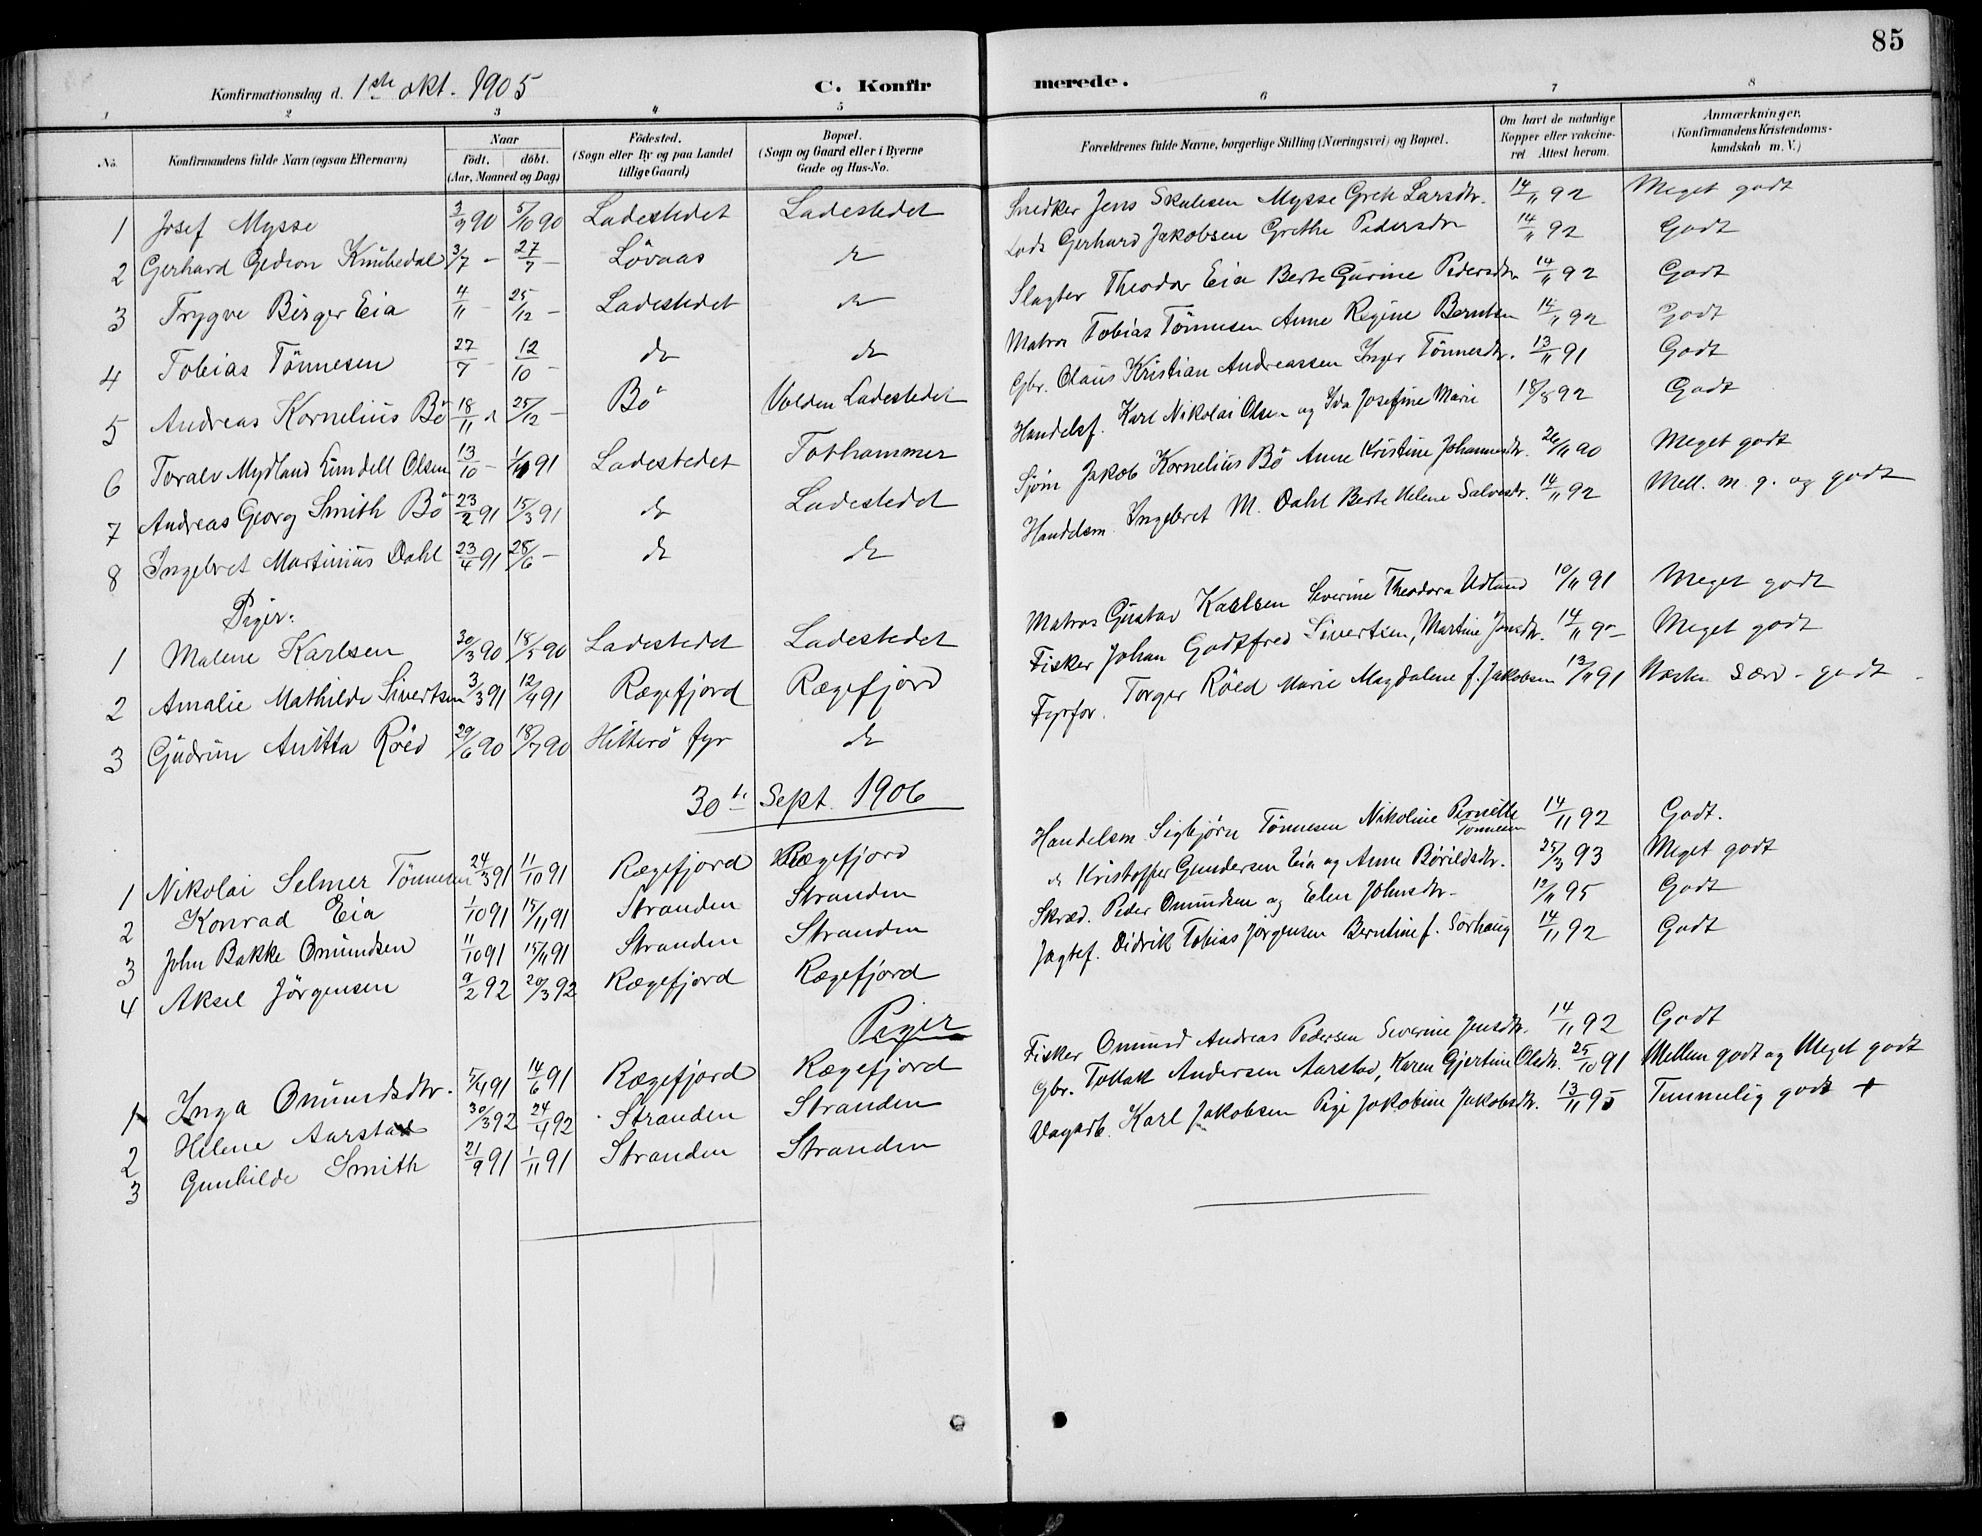 85
Konfirmationsdag d. 1ste okt. 1905
C. Konfirmerede.
1 2 3 4 5 6 7 8
No.
Konfirmandens fulde Navn (ogsaa Efternavn)
Naar
født. døbt.
(Aar, Maaned og Dag)
Födested.
(Sogn eller By og paa Landet
tillige Gaard)
Bopæl.
(Sogn og Gaard eller i Byerne
Gade og Hus-No.
Forældrenes fulde Navne, borgerlige Stilling (Næringsvei) og Bopæl.
Om havt de naturlige
Kopper eller vakcine-
ret Attest herom.
Anmærkninger.
(Konfirmandens Kristendoms-
kundskab m. V.)
1 Josef Mysse 3/9 90 5/10 90 Ladestedet Ladestedet Snedker Jens Skulesen Mysse Grete Larsdtr. 14/11 92 Meget godt
2 Gerhard Gedion Knubedal 3/7 - 27/7 - Lövaas do Lods Gerhard Jakobsen Grethe Pedersdtr 14/11 92 Godt
3 Trygve Birger Eia 4/11 - 25/12 - Ladestedet do Slagter Theodor Eia Berte Gurine Pedersdtr 14/11 92 Godt
4 Tobias Tönnesen 27/7 - 12/10 - do do Matros Tobias Tönnesen Anne Regine Berntsen 14/11 92 Godt
5 Andreas Kornelius Bö 18/11 - 25/12 - Bö Volden Ladestedet Gbr. Olaus Kristian Andreassen Inger Tönnesdtr. 13/11 91 Godt
6 Toralv Mydland Eimdell Olsen 13/10 - 1/1 91 Ladestedet Tothammer Handelsf. Karl Nikolai Olsen og Ida Josefine Marie 18/8 92 Godt
7 Andreas Georg Smith Bö 23/2 91 15/3 91 do Ladestedet Sjöm Jakob Kornelius Bö Anne Kristine Johannesdtr. 26/11 90 Meget godt
8 Ingebret Martinius Dahl 23/4 91 28/6 - do do Handelsm. Ingebret M. Dahl Berte Helene Salvesdr. 14/11 92 Mell. m. g. og godt
Piger:
1 Malene Karlsen 30/3 90 18/5 90 Ladestedet Ladestedet Matros Gustav Karlsen Severine Theodora Udland 10/11 91 Meget godt
2 Amalie Mathilde Sivertsen 3/3 91 12/4 91 Rægefjord Rægefjord Fisker Johan Godtfred Sivertsen, Martine Jonsdtr. 14/11 90 - Meget godt
3 Gudrun Anitta Röed 29/6 90 18/7 90 Hitterö fyr do Fyrfor. Torger Röed Marie Magdalene f. Jakobsen 13/11 91 Næsten Særd - godt -
30te Sept. 1906
1 Nikolai Selmer Tönnesen 24/3 91 11/10 91 Rægefjord Rægefjord Handelsm. Sigbjörn Tönnesen Nikoline Pernille Tönnesen 14/11 92 Godt.
2 Konrad Eia 1/10 91 15/11 91 Stranden Stranden do Kristoffer Gundersen Eia og Anne Börildsdtr. 25/3 93 Meget godt
3 John Bakke Omundsen 11/10 91 15/11 91 Stranden Stranden Skræd. Peder Omundsen og Elen Johnsdtr. 12/11 95 Godt
4 Aksel Jörgensen 9/2 92 20/3 92 Rægefjord Rægefjord Jagtef. Didrik Tobias Jörgensen Berntine f. Sörhaug 14/11 92 Godt
Piger
1 Inga Omundsdtr. 5/4 91 14/6 91 Rægefjord Rægefjord Fisker Omund Andreas Pedersen Severine Jensdtr. 14/11 92 Godt
2 Helene Aarstad 30/3 92 24/4 92 Stranden Stranden Gbr. Tollak Andersen Aarstad, Karen Gjertine Olsdtr. 25/10 91 Mellem godt og Meget godt
3 Gunhilde Smith 21/9 91 1/11 91 Stranden Stranden Dagarb. Karl Jakobsen Pige Jakobine Jakobsdtr. 13/11 95 Temmelig godt +